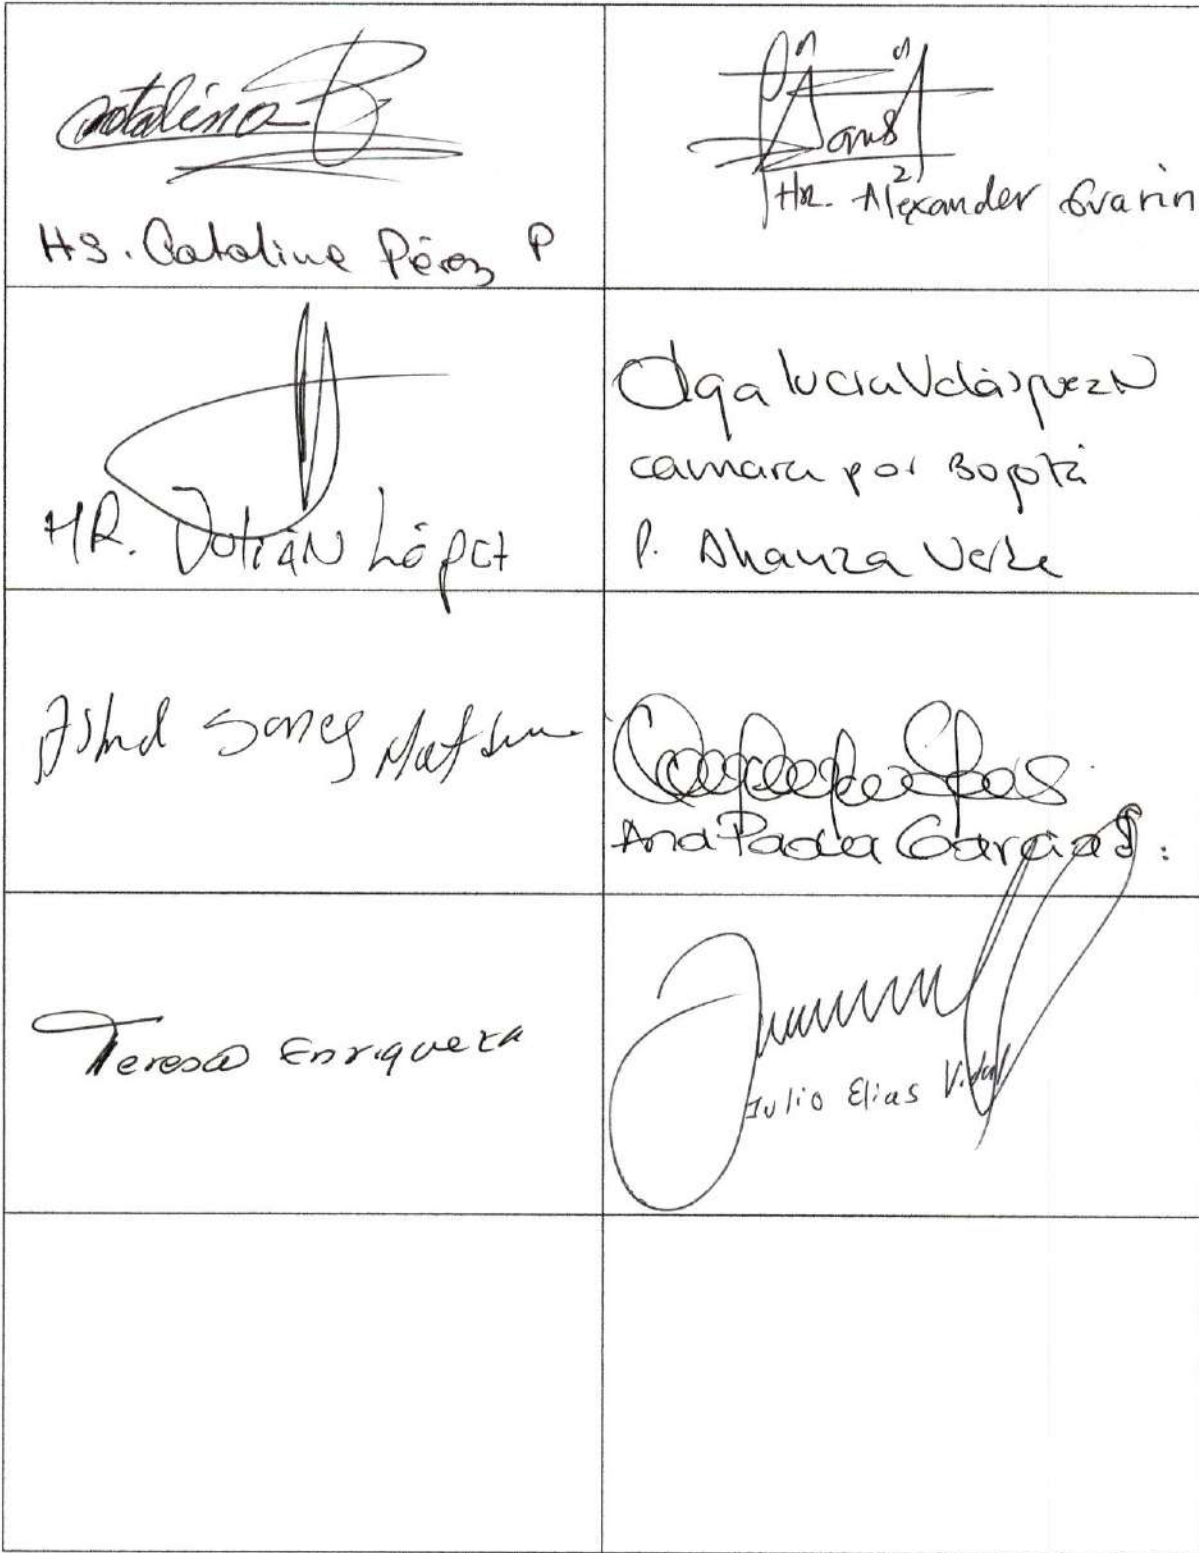 Catalina
HS. Catalina Pérez P
HR. Alexander Guarin
HR. Julián López
Olga Lucia Velásquez N
camara por Bogotá
P. Alianza Verde
Ana Paola García S.
Teresa Enriquez R
Julio Elias Vidal